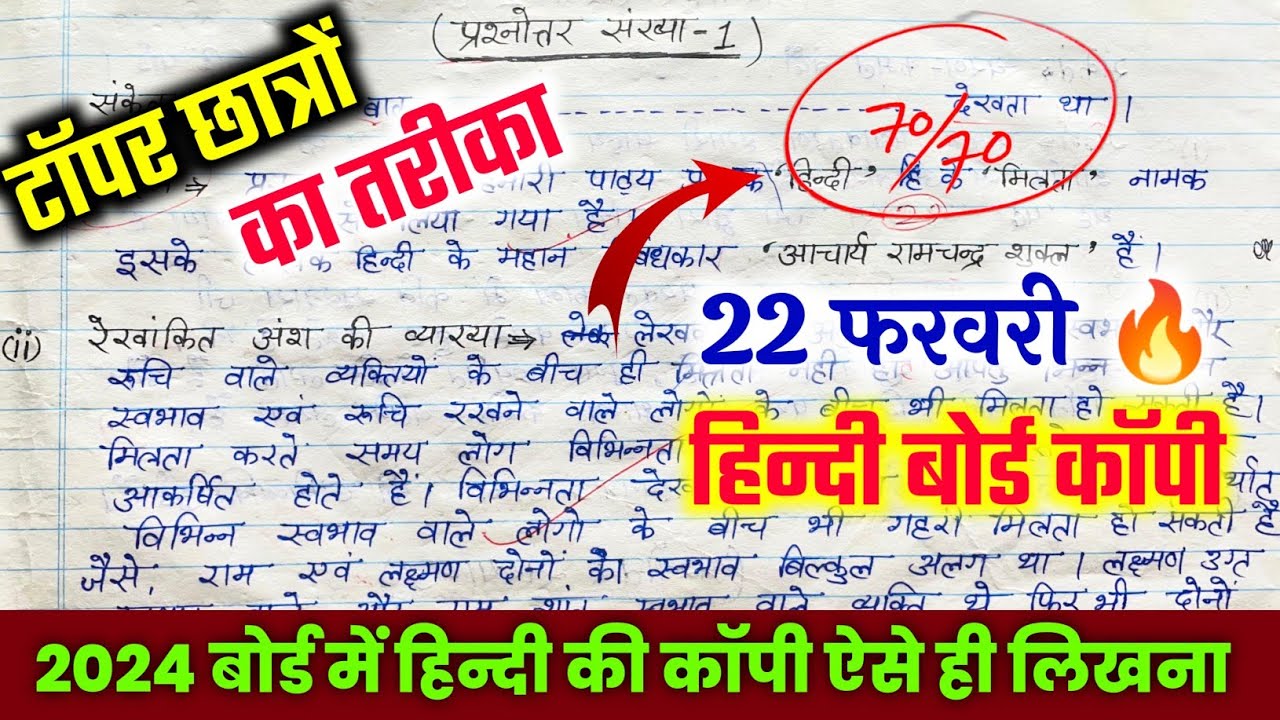 (प्रश्नोत्तर संख्या-1)
टॉपर छात्रों
का तरीका
देखता था।
70/70
पाठ्य 'हिन्दी' के 'मित्रता' नामक
गया है।
इसके हिन्दी के महान 'आचार्य रामचन्द्र शुक्ल' हैं।
22 फरवरी 🔥
हिन्दी बोर्ड कॉपी
(ii) रेखांकित अंश की व्याख्या⇒
रूचि वाले व्यक्तियों के बीच ही मित्रता नही
स्वभाव एवं रूचि रखने वाले लोगों के बीच भी मित्रता हो सकती है।
मित्रता करते समय लोग विभिन्नता
आकर्षित होते हैं। विभिन्नता
विभिन्न स्वभाव वाले लोगो के बीच भी गहरी मित्रता हो सकती है
जैसे, राम एवं लक्ष्मण दोनों को स्वभाव बिल्कुल अलग था। लक्ष्मण उग्र
स्वभाव वाले व्यक्ति थे फिर भी दोनों
2024 बोर्ड में हिन्दी की कॉपी ऐसे ही लिखना